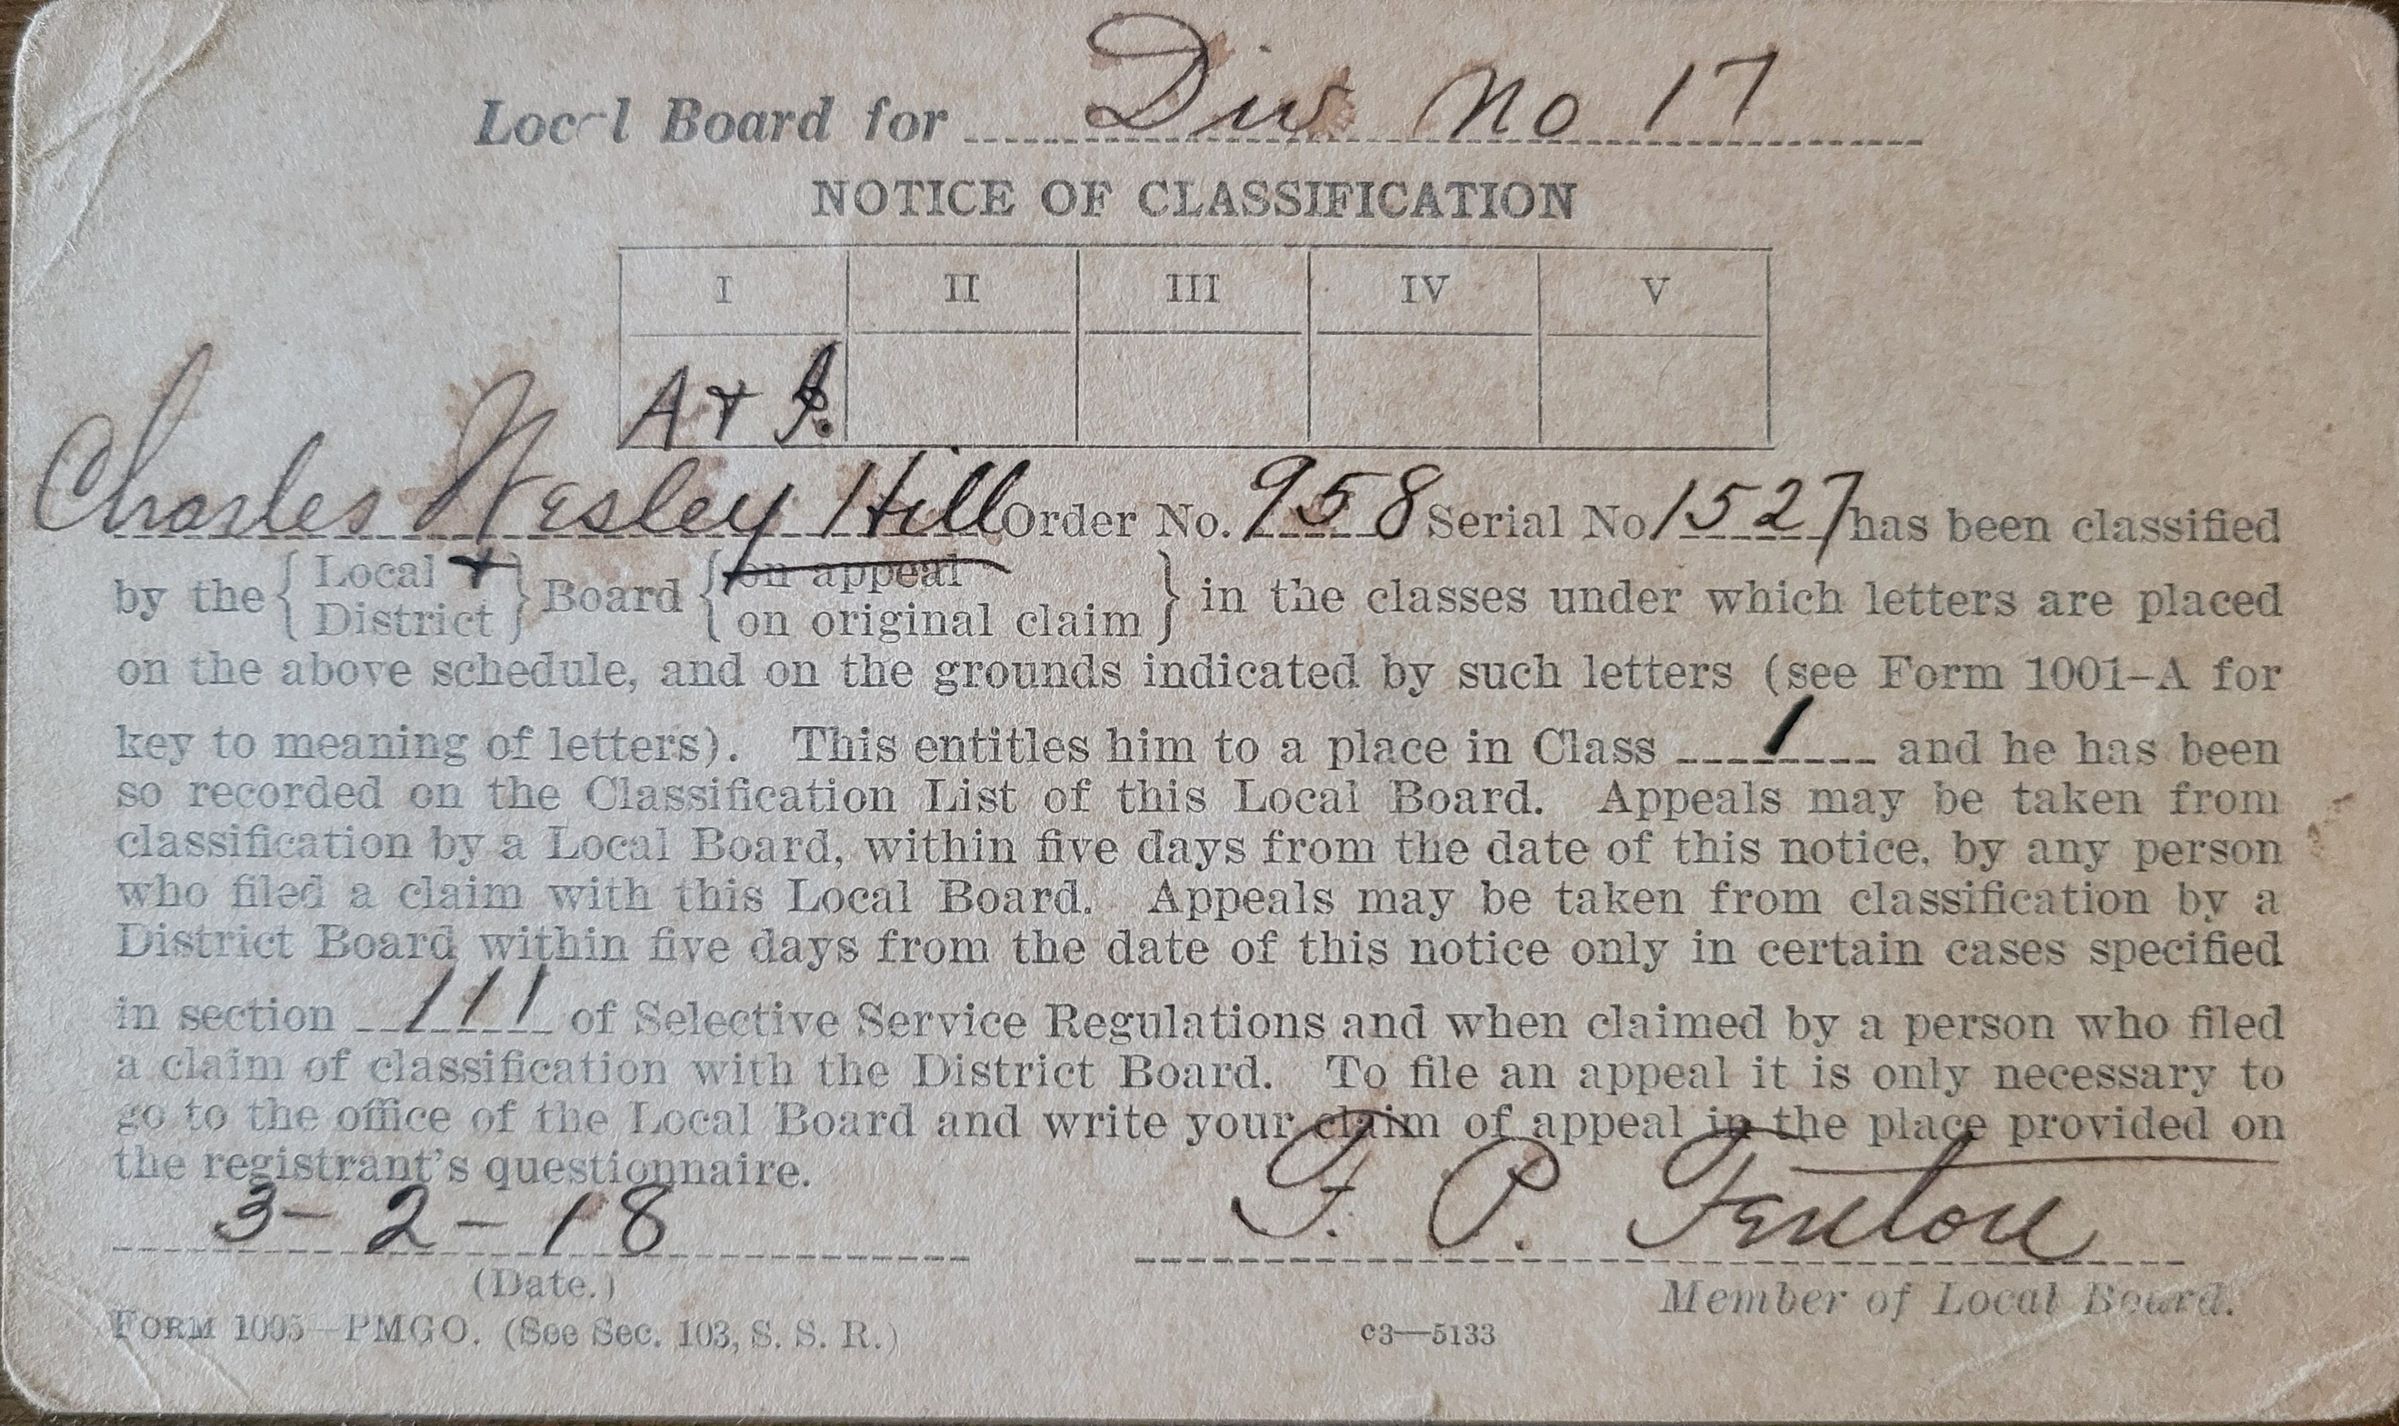 Local Board for Div No 17
NOTICE OF CLASSIFICATION
I II III IV V
A +
Charles Wesley Hill Order No. 958 Serial No 1527 has been classified
by the { Local + District } Board { on appeal on original claim } in the classes under which letters are placed
on the above schedule, and on the grounds indicated by such letters (see Form 1001–A for
key to meaning of letters). This entitles him to a place in Class 1 and he has been
so recorded on the Classification List of this Local Board. Appeals may be taken from
classification by a Local Board, within five days from the date of this notice, by any person
who filed a claim with this Local Board. Appeals may be taken from classification by a
District Board within five days from the date of this notice only in certain cases specified
in section 111 of Selective Service Regulations and when claimed by a person who filed
a claim of classification with the District Board. To file an appeal it is only necessary to
go to the office of the Local Board and write your claim of appeal in the place provided on
the registrant's questionnaire.
3-2-18 F. P. Fenlon
(Date.) Member of Local Board.
FORM 1005—PMGO. (See Sec. 103, S. S. R.) c3—5133